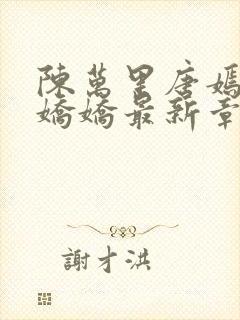 陳萬里唐嫣
嬌嬌最新章
謝才洪